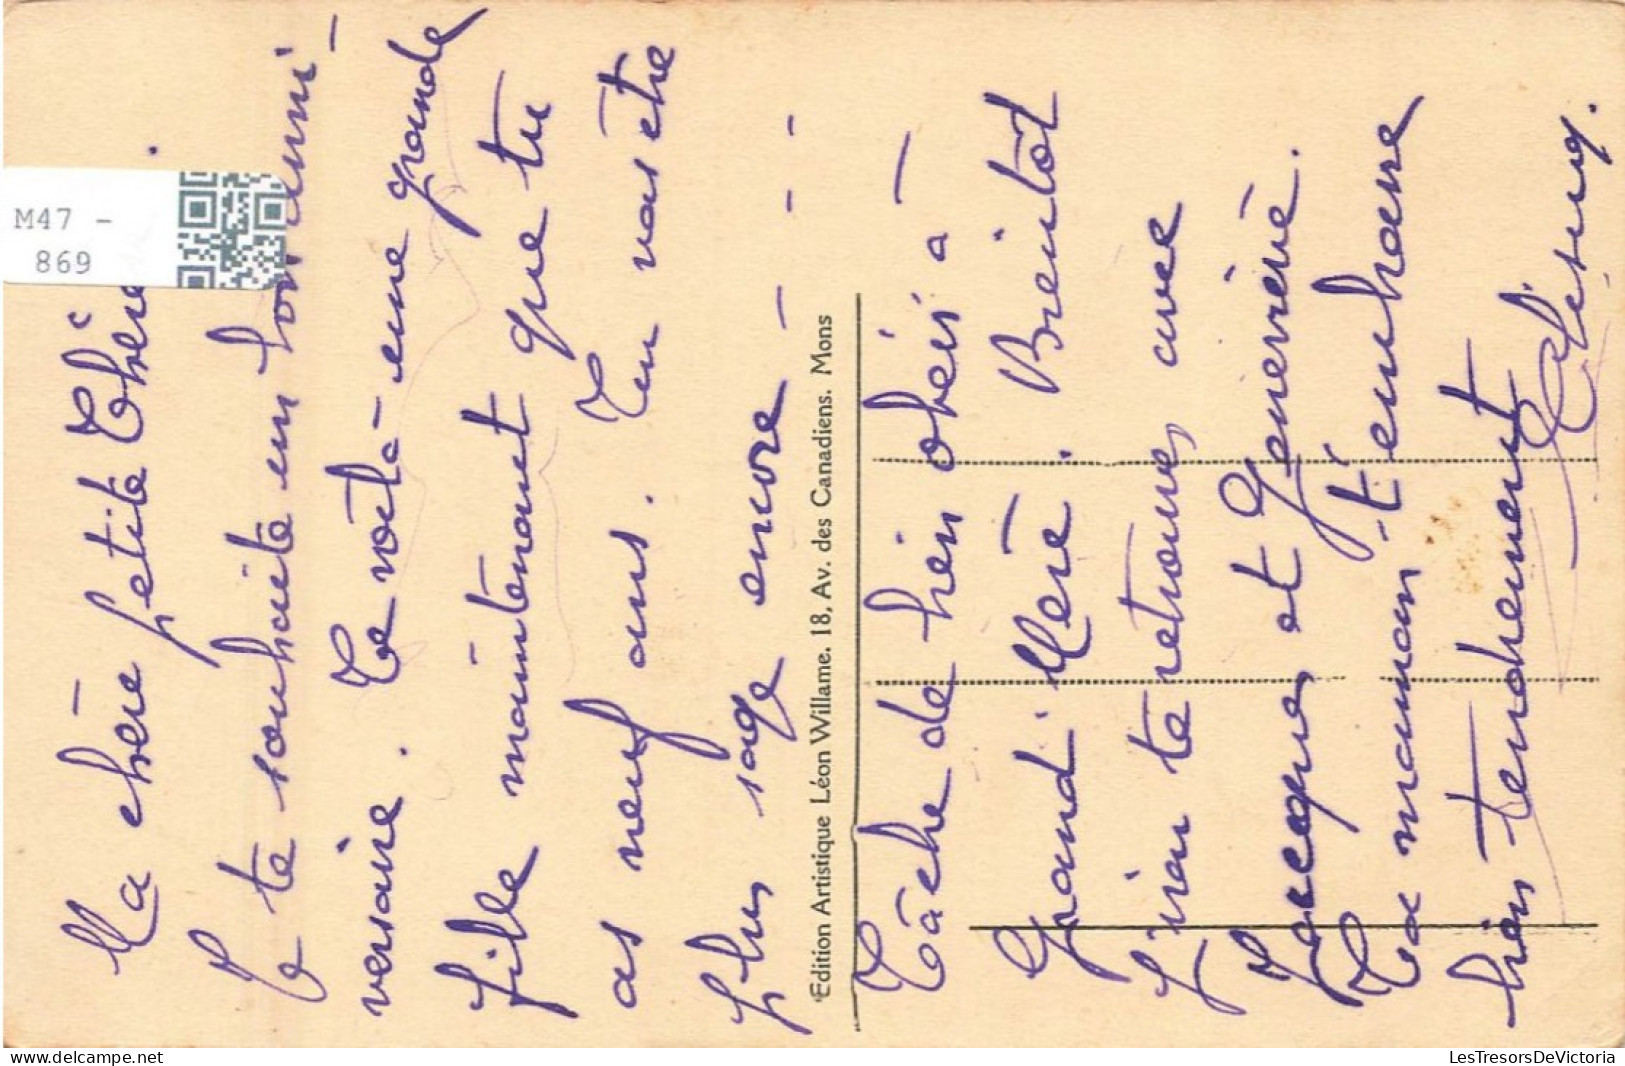 Ma chère petite
Je te souhaite un bon anni-
versaire. Te voilà une grande
fille maintenant que tu
as neuf ans. Tu vas être
plus sage encore - - -
Edition Artistique Léon Willame. 18, Av. des Canadiens. Mons
Tâche de bien obéir à
Grand'Mère. Bientôt
j'irai te retrouver avec
Jacques et Geneviève.
Ta maman t'embrasse
bien tendrement
M47 -
869
LesTresorsDeVictoria